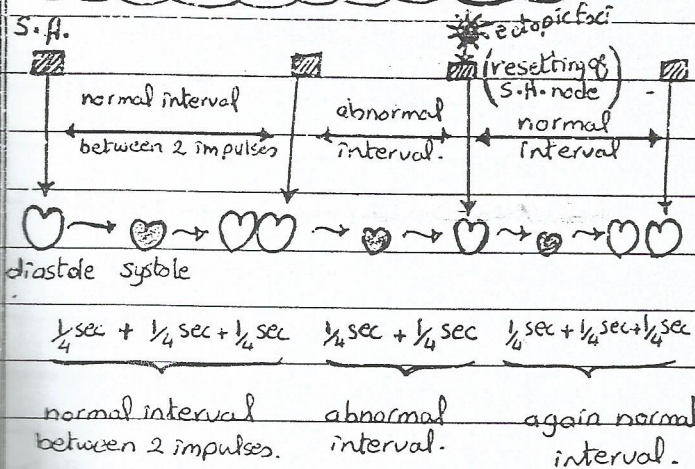 S.A.
ectopic foci
(resetting of
S.A. node)
normal interval
between 2 impulses
abnormal
interval.
normal
interval
diastole systole
1/4 sec + 1/4 sec + 1/4 sec
1/4 sec + 1/4 sec
1/4 sec + 1/4 sec + 1/4 sec
normal interval
between 2 impulses.
abnormal
interval.
again normal
interval.